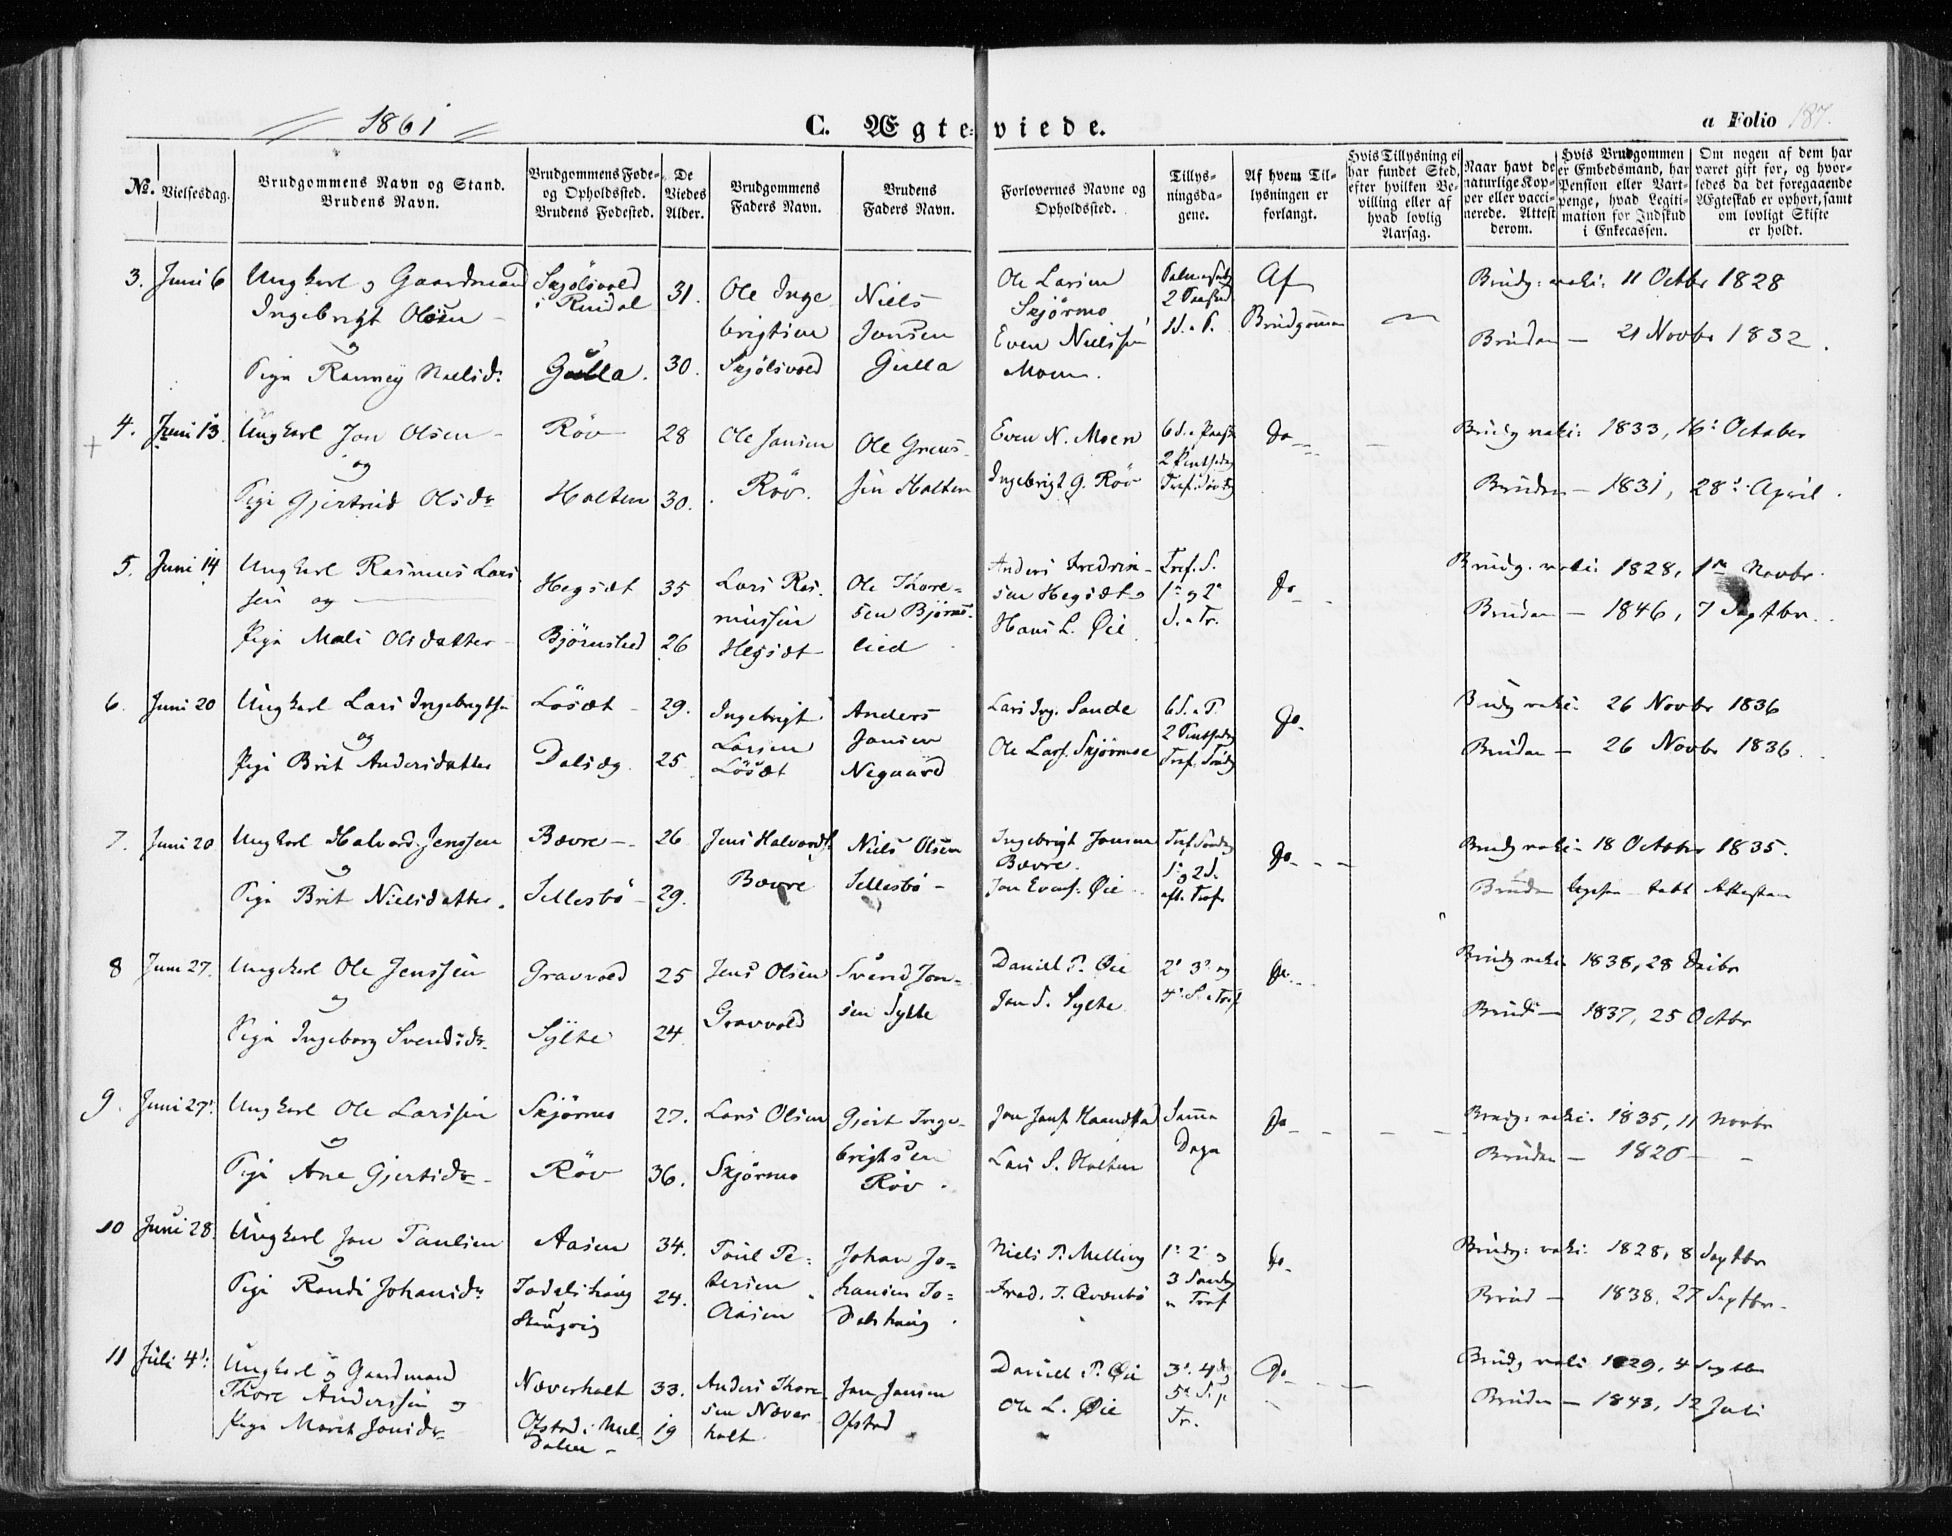 1861
C. Ægteviede.
a Folio 187.
No.
Vielsesdag.
Brudgommens Navn og Stand.
Brudens Navn.
Brudgommens Føde-
og Opholdssted.
Brudens Fødested.
De
Viedes
Alder.
Brudgommens
Faders Navn.
Brudens
Faders Navn.
Forlovernes Navne og
Opholdssted.
Tillys-
ningsda-
gene.
Af hvem Til-
lysningen er
forlangt.
Hvis Tillysning ei
har fundet Sted,
efter hvilken Be-
villing eller af
hvad lovlig
Aarsag.
Naar havt de
naturlige Kop-
per eller vacci-
nerede. Attest
derom.
Hvis Brudgommen
er Embedsmand, har
Pension eller Vart-
penge, hvad Legiti-
mation for Indskud
i Enkecassen.
Om nogen af dem har
været gift før, og hvor-
ledes da det foregaaende
Ægteskab er ophørt, samt
om lovligt Skifte
er holdt.
3. Juni 6 Ungkarl og Gaardmand
Ingebrigt Olsen
og
Pige Ranney Nielsdr
Skjölsvold
i Rindal
Gulla.
31.
30.
Ole Inge
brigtsen
Skjölsvold
Niels
Jonsen
Gulla
Ole Larsen
Skjörmo
Even Nielsen
Moen.
2 Paaskd
1 S. e. P.
Af
Brudgommen
Brudg: vaki: 11 Octbr 1828
Bruden — 21 Novbr 1832.
4. Juni 13. Ungkarl Jon Olsen
og
Pige Gjertrud Olsdr
Röv
Holten
28
30.
Ole Jonsen
Röv.
Ole
sen Holten
Even N. Moen
Ingebrigt G. Röv
6 S. e. Paask
2 Pintsedag
Tref. Söndg
Do
Brudg vaki: 1833, 16: October
Bruden — 1831, 28: April.
5. Juni 14 Ungkarl Rasmus Lars
sen og
Pige Mali Olsdatter
Hegsæt
Bjömslied
35
26
Lars Ras.
mussen
Hegsæt
Ole Thore-
sen Bjørns-
lied
Anders Fredrik-
sen Hegsæt og
Hans L. Øie
Tref. S.
1: og 2:
S. e. Tr.
Do
Brudg. vaki: 1828, 1ste Novbr.
Bruden — 1846, 7 Septbr.
6. Juni 20 Ungkarl Lars Ingebrigts.
og
Pige Brit Andersdatter
Lösæt
Dalsæg
29.
25
Ingebrigt
Larsen
Lösæt
Anders
Jonsen
Negaard
Lars Ing. Sande
Ole Lars. Skjörmoe
6 S. e. P.
2 Pintsedag
Tref. Söndg
Do.
Brudg vaki. 26 Novbr 1836
Bruden — 26 Novbr 1836.
7. Juni 20 Ungkarl Halvard Jenssen
og
Pige Brit Nielsdatter.
Bævre
Sellesbö
26
29.
Jens Halvords.
Bævre
Niels Olsen
Sellesbö
Ingebrigt Jonsen
Bævre.
Jon Evens. Øie
Tref Söndag
1: og 2 S.
eft. Tref.
Do
Brudg vaki. 18 Octobr 1835.
Bruden tabt Attesten
8 Juni 27. Ungkarl Ole Jenssen
og
Pige Ingeborg Svendsdr.
Gravvold
Sylte
25
24.
Jens Olsen
Gravvold
Svend Jon-
sen Sylte
Daniel P. Øie
Jon S. Sylte
2: 3: og
4: S. e. Tref
Do
Brudg vaki. 1838, 28 Octbr
Brud — 1837, 25 Octbr
9. Juni 27: Ungkarl Ole Larssen
og
Pige Ane Gjertsdr
Skjörmo
Röv
27.
36.
Lars Olsen
Skjörmo
Gjert Inge-
brigtsen
Röv.
Jon Jons.
Lars S. Holten
Samme
Dage
Do
Brudg: vaki. 1835, 11 Novbr
Bruden — 1826
10 Juni 28. Ungkarl Jon Paulsen
og
Pige Randi Johansdr
Aasen
Todalshoug
34.
24.
Poul Pe-
tersen
Aasen
Johan Jo-
hansen To-
dalshoug.
Niels P. Melling
Fred. T. Qvænbö
1: 2: og
3 Söndag
e Tref
Do
Brudg: vaki. 1828, 8 Septbr
Brud — 1838, 27 Septbr.
11 Juli 4: Ungkarl og Gaardmand
Thore Anderssen og
Pige Marit Jonsdr
Næverholt
Ofstad i Mel-
dalen
33.
19
Anders Thore
sen Næver
holt
Jon Jonsen
Ofstad
Daniel P. Øie
Ole L. Øie
3: 4de og
5te S. p.
Tr.
Do
Brudg vaki 1829, 4 Septbr
Bruden — 1843, 12 Juli